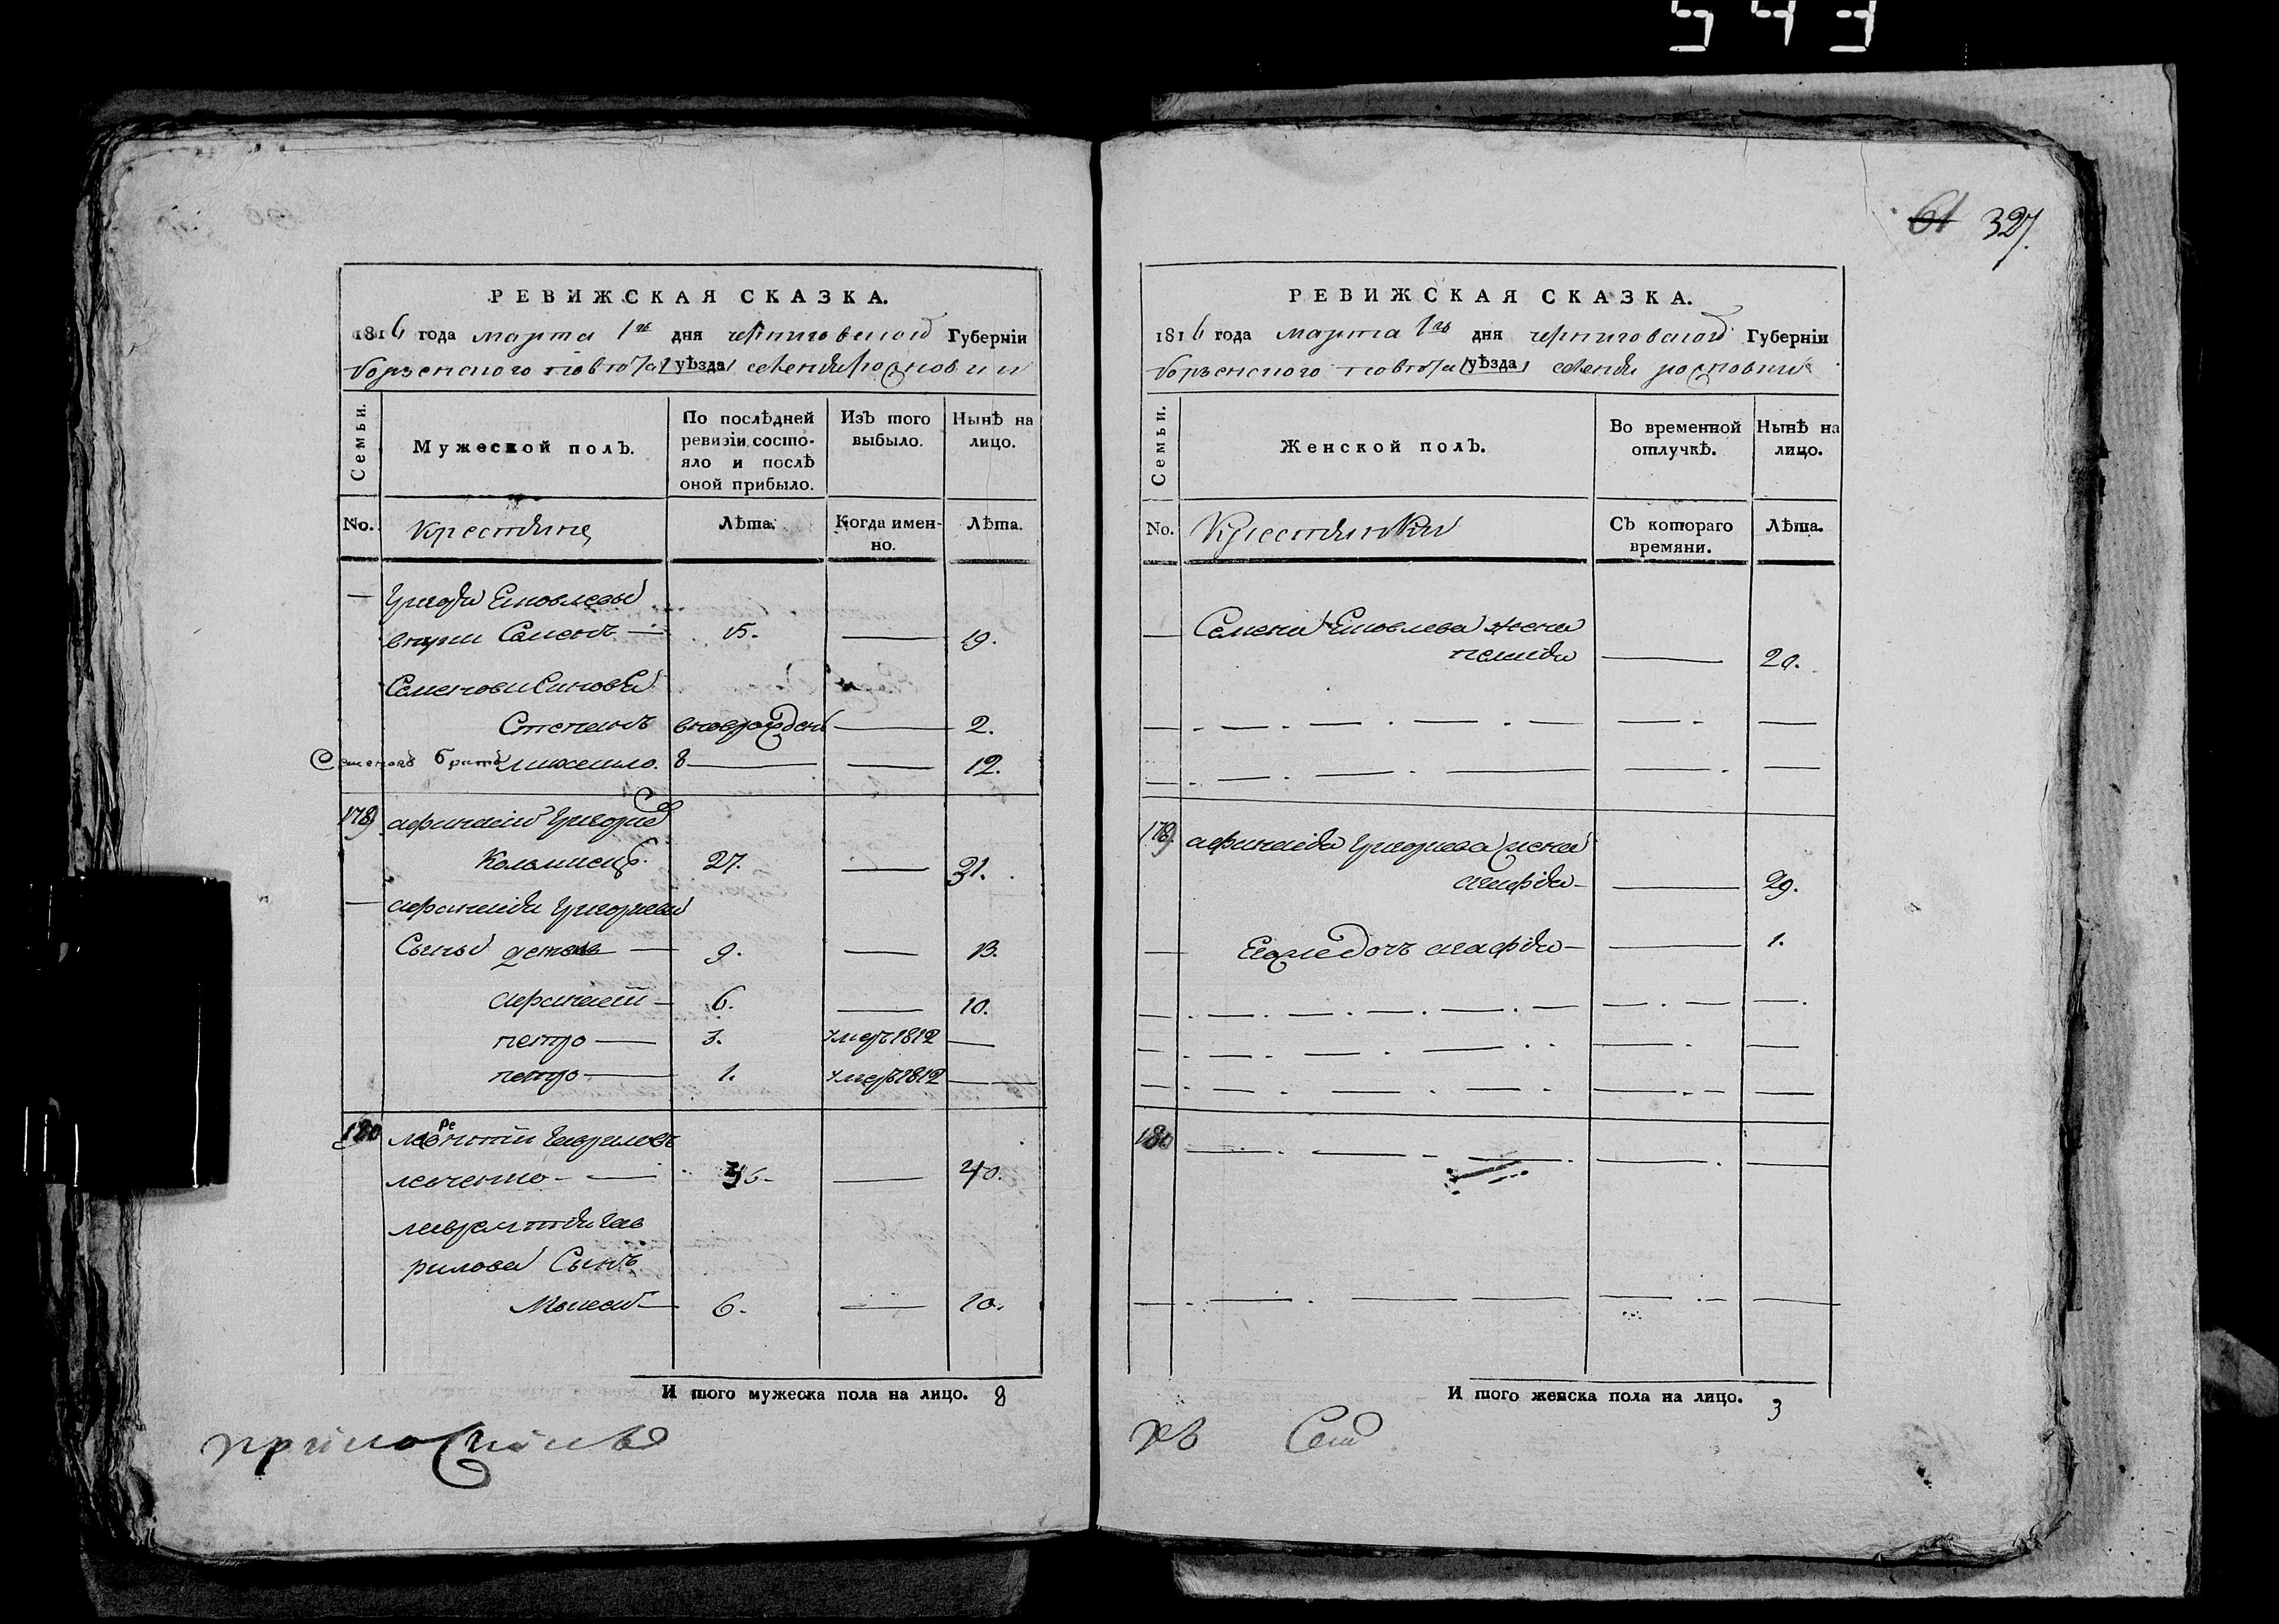 543
61 327.
РЕВИЖСКАЯ СКАЗКА.
1816 года марта 1го дня черниговской Губерніи
борзенского повета уѣзда селенія росновки
Семьи.
Мужеской полъ.
По послѣдней ревизіи состояло и послѣ оной прибыло.
Изъ того выбыло.
Нынѣ на лицо.
No.
Крестяне
Лѣта.
Когда именно.
Лѣта.
— Григория Яковлева
внуки Семенъ — 15. — 19.
Семенови Синовя
Степанъ вноврожден — 2.
Семеновъ братъ михаило. 8 — — 12.
179 афанасий Григориев
27. — 31.
— афанасия Григориева
Сыны 9. — 13.
афанасий — 6. — 10.
петро — 3. умеръ 1812 —
петро — 1. умеръ 1812 —
180 лаврентий Гаврилов
левченко — 36 — 40.
лаврентия Гав
рилова Сынъ
Моисей — 6. — 10.
И того мужеска пола на лицо. 8
РЕВИЖСКАЯ СКАЗКА.
1816 года марта 1го дня черниговской Губерніи
борзенского повета уѣзда селенія росновки
Семьи.
Женской полъ.
Во временной отлучкѣ.
Нынѣ на лицо.
No.
Крестянки
Съ котораго времяни.
Лѣта.
— Семена Яковлева жена
— 20.
179 афанасия Григориева жена
агафия — — 29.
— Егожедочъ агафия — — 1.
180
И того женска пола на лицо. 3